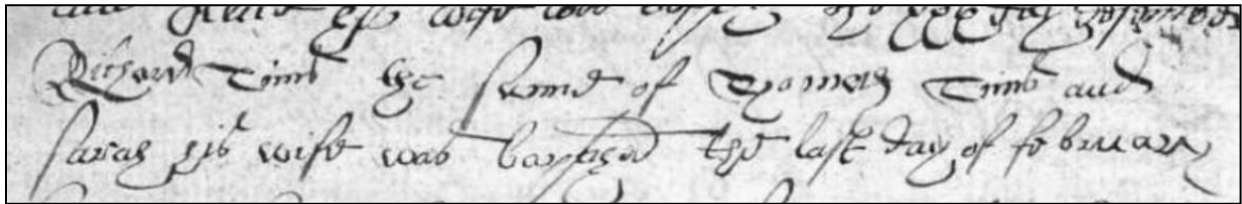 his wife was the day
Richard Tims the sunne of Thomas Tims and
sarah his wife was baptized the last day of february